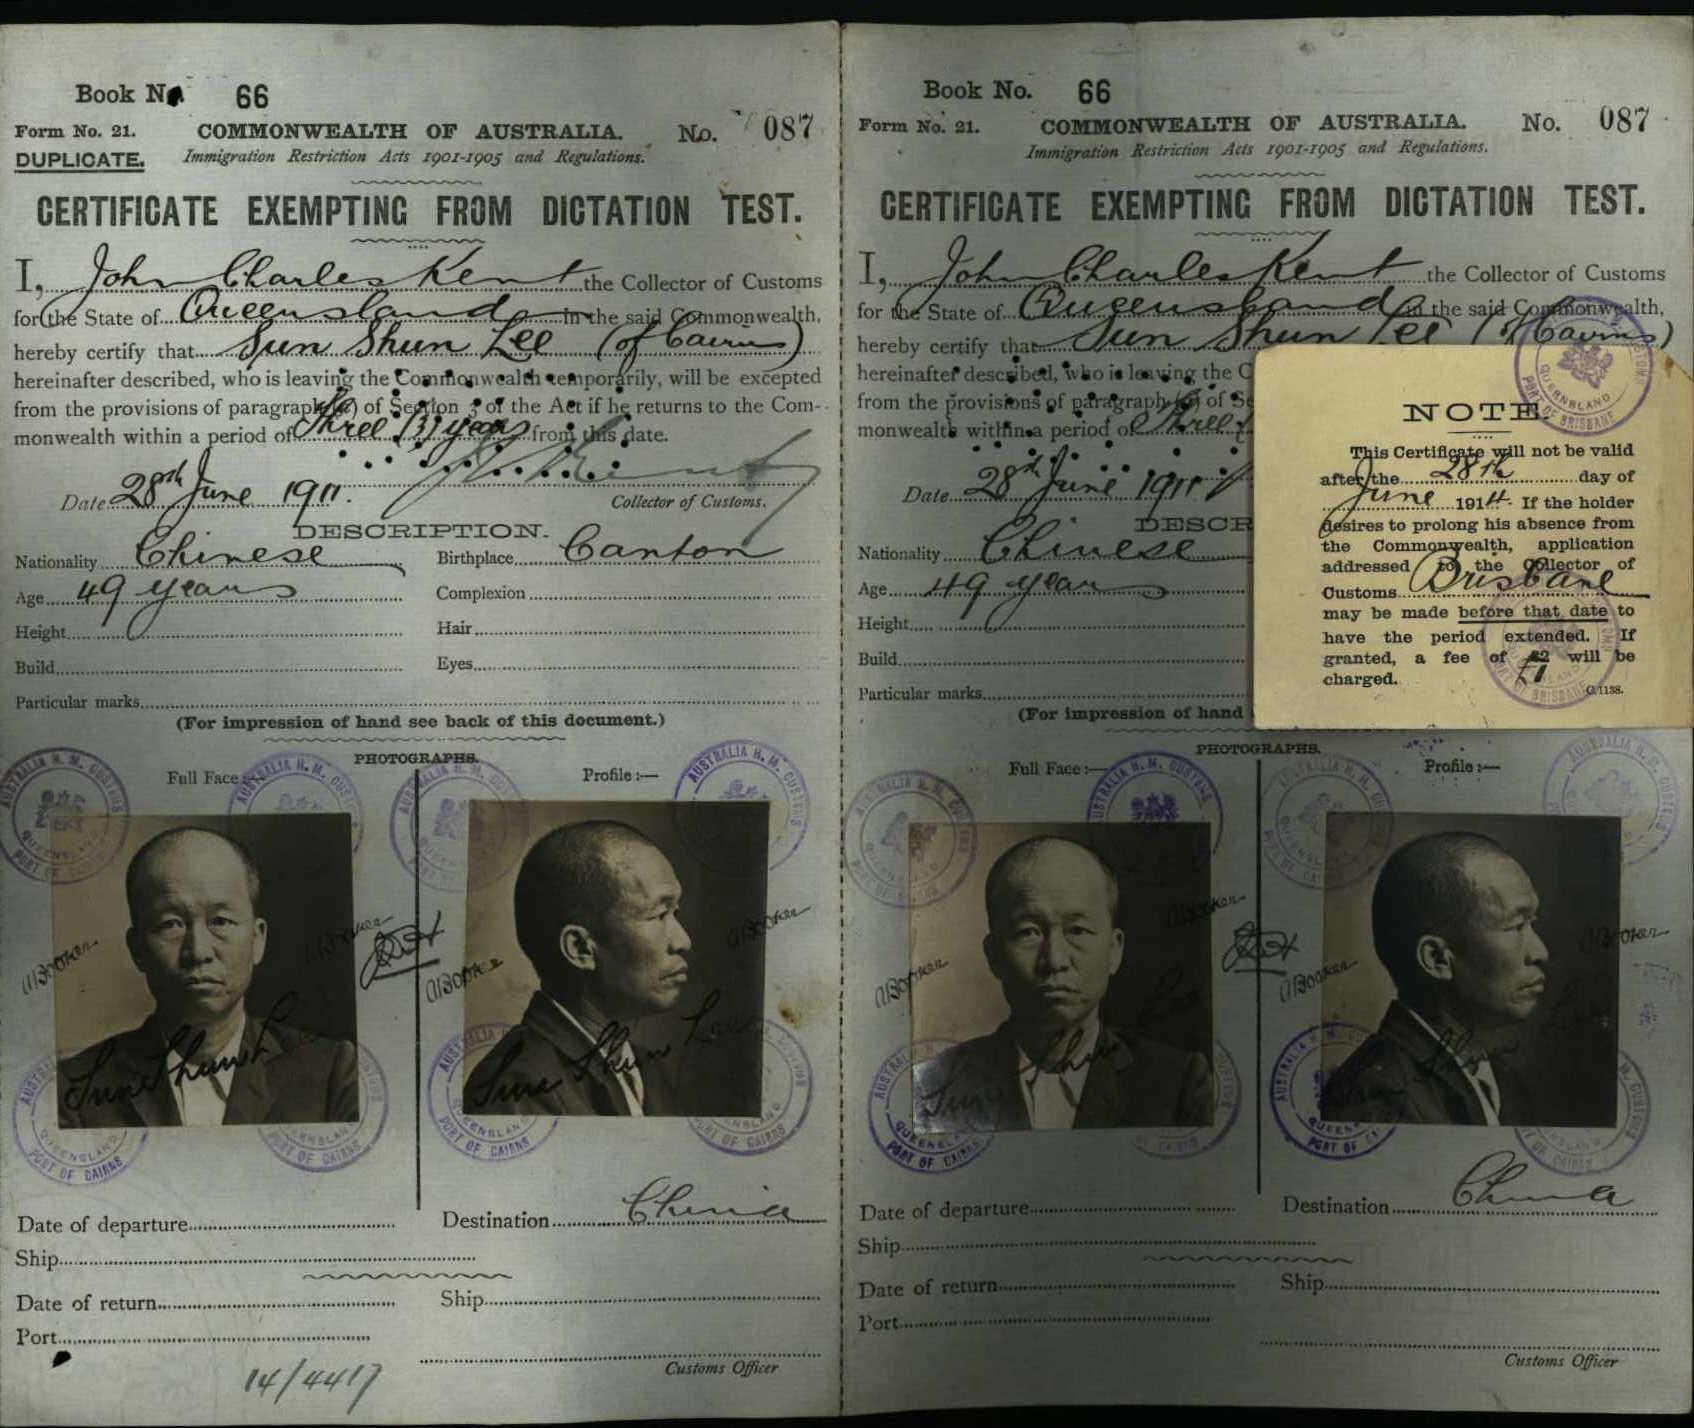 Book No. 66
Form No. 21. COMMONWEALTH OF AUSTRALIA. No. 087
DUPLICATE. Immigration Restriction Acts 1901-1905 and Regulations.
CERTIFICATE EXEMPTING FROM DICTATION TEST.
I, John Charles Kent the Collector of Customs
for the State of Queensland in the said Commonwealth,
hereby certify that Sun Shun Lee (of Cairns)
hereinafter described, who is leaving the Commonwealth temporarily, will be excepted
from the provisions of paragraph (a) of Section 3 of the Act if he returns to the Com-
monwealth within a period of Three (3) years from this date.
Date 28th June 1911.
Collector of Customs.
DESCRIPTION.
Nationality Chinese Birthplace Canton
Age 49 years Complexion
Height Hair
Build Eyes
Particular marks
(For impression of hand see back of this document.)
PHOTOGRAPHS.
Full Face:— Profile:—
AUSTRALIA H. M. CUSTOMS QUEENSLAND PORT OF CAIRNS
Sun Shun Lee
Sun Shun Lee
Date of departure Destination China
Ship
Date of return Ship
Port
Customs Officer
14/4417
Book No. 66
Form No. 21. COMMONWEALTH OF AUSTRALIA. No. 087
Immigration Restriction Acts 1901-1905 and Regulations.
CERTIFICATE EXEMPTING FROM DICTATION TEST.
I, John Charles Kent the Collector of Customs
for the State of Queensland in the said Commonwealth,
hereby certify that Sun Shun Lee (of Cairns)
hereinafter described, who is leaving the C
from the provisions of paragraph (a) of Se
monwealth within a period of Three
Date 28th June 1911
DESCR
Nationality Chinese
Age 49 years
Height
Build
Particular marks
(For impression of hand
NOTE.
This Certificate will not be valid
after the 28th day of
June 1914. If the holder
desires to prolong his absence from
the Commonwealth, application
addressed to the Collector of
Customs Brisbane
may be made before that date to
have the period extended. If
granted, a fee of £1 will be
charged.
C.1138.
QUEENSLAND PORT OF BRISBANE
PHOTOGRAPHS.
Full Face:— Profile:—
AUSTRALIA H. M. CUSTOMS QUEENSLAND PORT OF CAIRNS
Sun Shun Lee
Sun Shun Lee
Date of departure Destination China
Ship
Date of return Ship
Port
Customs Officer